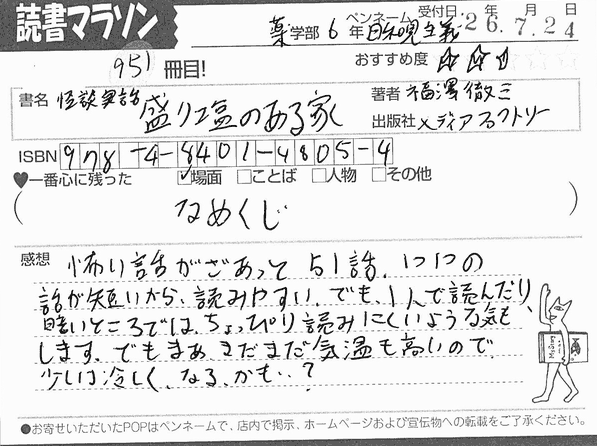 読書マラソン
薬学部 6年 ペンネーム 日和見主義 受付日 26年 7月 24日
951冊目! おすすめ度 ☆☆☆
書名 怪談実話 盛り塩のある家 著者 福澤徹三
出版社 メディアファクトリー
ISBN 978-4-8401-4805-4
♥一番心に残った ☑場面 □ことば □人物 □その他
(なめくじ)
感想 怖い話がざあっと51話。1つ1つの
話が短いから、読みやすい。でも、1人で読んだり、
暗いところでは、ちょっぴり読みにくいような気も
します。でもまあ、まだまだ気温も高いので、
少しは涼しく、なる、かも..?
●お寄せいただいたPOPはペンネームで、店内で掲示、ホームページおよび宣伝物への転載をご了承ください。